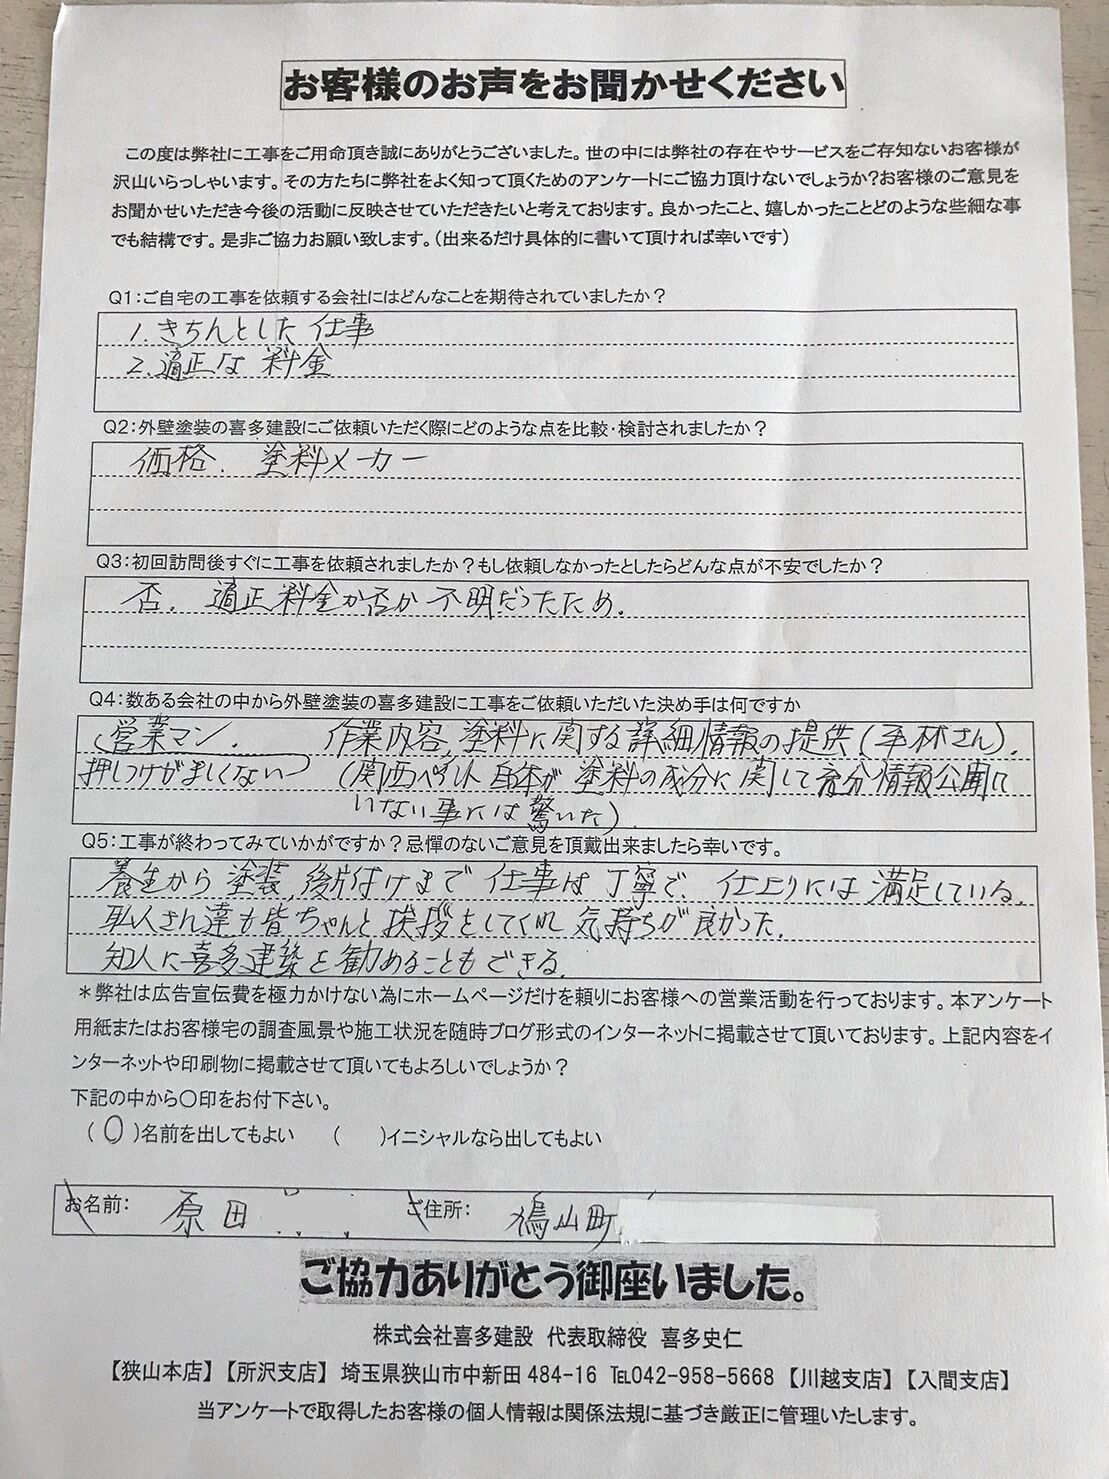 お客様のお声をお聞かせください
この度は弊社に工事をご用命頂き誠にありがとうございました。世の中には弊社の存在やサービスをご存知ないお客様が
沢山いらっしゃいます。その方たちに弊社をよく知って頂くためのアンケートにご協力頂けないでしょうか?お客様のご意見を
お聞かせいただき今後の活動に反映させていただきたいと考えております。良かったこと、嬉しかったことどのような些細な事
でも結構です。是非ご協力お願い致します。(出来るだけ具体的に書いて頂ければ幸いです)
Q1:ご自宅の工事を依頼する会社にはどんなことを期待されていましたか?
1.きちんとした仕事
2.適正な料金
Q2:外壁塗装の喜多建設にご依頼いただく際にどのような点を比較・検討されましたか?
価格. 塗料メーカー
Q3:初回訪問後すぐに工事を依頼されましたか?もし依頼しなかったとしたらどんな点が不安でしたか?
否. 適正料金か否か不明だったため.
Q4:数ある会社の中から外壁塗装の喜多建設に工事をご依頼いただいた決め手は何ですか
営業マン. 作業内容,塗料に関する詳細情報の提供(平林さん).
押しつけがましくない (関西ペイント自体が塗料の成分に関して充分情報公開して
いない事には驚いた)
Q5:工事が終わってみていかがですか?忌憚のないご意見を頂戴出来ましたら幸いです。
養生から塗装,後片付けまで仕事は丁寧で、仕上りには満足している.
職人さん達も皆ちゃんと挨拶をしてくれ気持ちが良かった.
知人に喜多建築を勧めることもできる.
*弊社は広告宣伝費を極力かけない為にホームページだけを頼りにお客様への営業活動を行っております。本アンケート
用紙またはお客様宅の調査風景や施工状況を随時ブログ形式のインターネットに掲載させて頂いております。上記内容をイ
ンターネットや印刷物に掲載させて頂いてもよろしいでしょうか?
下記の中から〇印をお付下さい。
(〇)名前を出してもよい ( )イニシャルなら出してもよい
お名前: 原田 ご住所: 鳩山町
ご協力ありがとう御座いました。
株式会社喜多建設 代表取締役 喜多史仁
【狭山本店】【所沢支店】 埼玉県狭山市中新田484-16 ℡042-958-5668 【川越支店】【入間支店】
当アンケートで取得したお客様の個人情報は関係法規に基づき厳正に管理いたします。